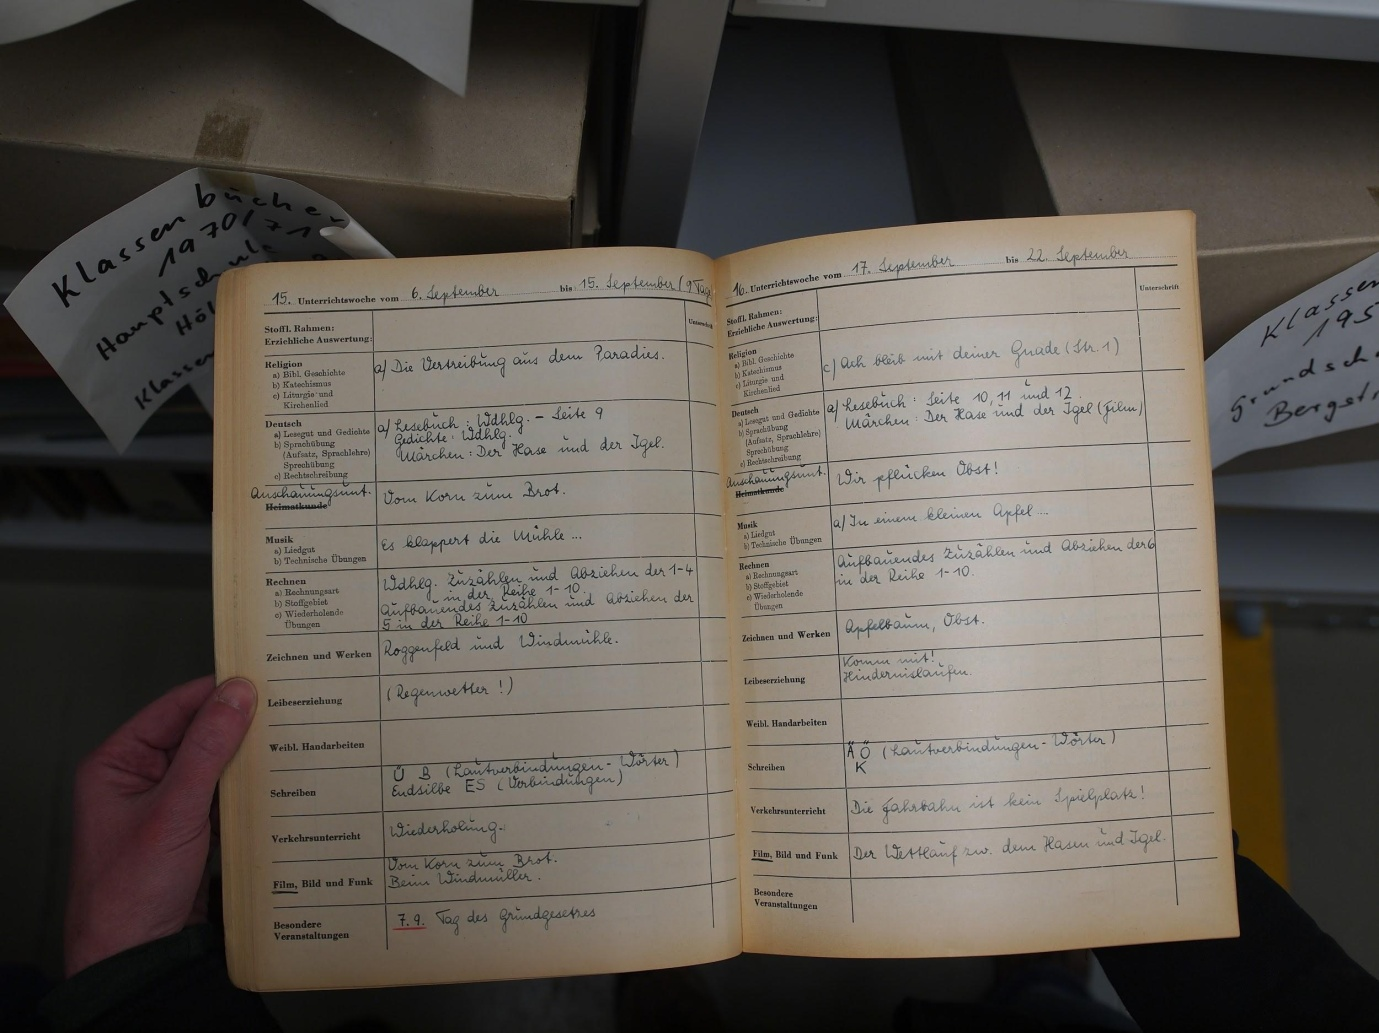 Klassenbücher
1970/71
Hauptschule
Klassen
Klassen
Bergstr
15. Unterrichtswoche vom 6. September bis 15. September (9 Tage
Stoffl. Rahmen:
Erziehliche Auswertung:
Unterschrift
Religion
a) Bibl. Geschichte
b) Katechismus
c) Liturgie und
Kirchenlied
a) Die Vertreibung aus dem Paradies.
Deutsch
a) Lesegut und Gedichte
b) Sprachübung
(Aufsatz, Sprachlehre)
Sprechübung
c) Rechtschreibung
a) Lesebuch: Wdhlg. - Seite 9
Gedichte: Wdhlg.
Märchen: Der Hase und der Igel.
Anschauungsunt.
Heimatkunde
Vom Korn zum Brot.
Musik
a) Liedgut
b) Technische Übungen
Es klappert die Mühle ...
Rechnen
a) Rechnungsart
b) Stoffgebiet
c) Wiederholende
Übungen
Wdhlg. Zuzählen und Abziehen der 1-4
in der Reihe 1-10.
Aufbauendes Zuzählen und Abziehen der
5 in der Reihe 1-10
Zeichnen und Werken
Roggenfeld und Windmühle.
Leibeserziehung
(Regenwetter!)
Weibl. Handarbeiten
Schreiben
Ü B (Lautverbindungen-Wörter)
Endsilbe ES (Verbindungen)
Verkehrsunterricht
Wiederholung.
Film, Bild und Funk
Vom Korn zum Brot.
Beim Windmüller.
Besondere
Veranstaltungen
7.9. Tag des Grundgesetzes
16. Unterrichtswoche vom 17. September bis 22. September
Stoffl. Rahmen:
Erziehliche Auswertung:
Unterschrift
Religion
a) Bibl. Geschichte
b) Katechismus
c) Liturgie und
Kirchenlied
c) Ach bleib mit deiner Gnade (Str. 1)
Deutsch
a) Lesegut und Gedichte
b) Sprachübung
(Aufsatz, Sprachlehre)
Sprechübung
c) Rechtschreibung
a) Lesebuch: Seite 10, 11 und 12.
Märchen: Der Hase und der Igel (Film)
Anschauungsunt.
Heimatkunde
Wir pflücken Obst!
Musik
a) Liedgut
b) Technische Übungen
a) In einem kleinen Apfel...
Rechnen
a) Rechnungsart
b) Stoffgebiet
c) Wiederholende
Übungen
Aufbauendes Zuzählen und Abziehen der 6
in der Reihe 1-10.
Zeichnen und Werken
Apfelbaum, Obst.
Leibeserziehung
Komm mit!
Hindernislaufen.
Weibl. Handarbeiten
Schreiben
Ä Ö (Lautverbindungen-Wörter)
K
Verkehrsunterricht
Die Fahrbahn ist kein Spielplatz!
Film, Bild und Funk
Der Wettlauf zw. dem Hasen und Igel.
Besondere
Veranstaltungen